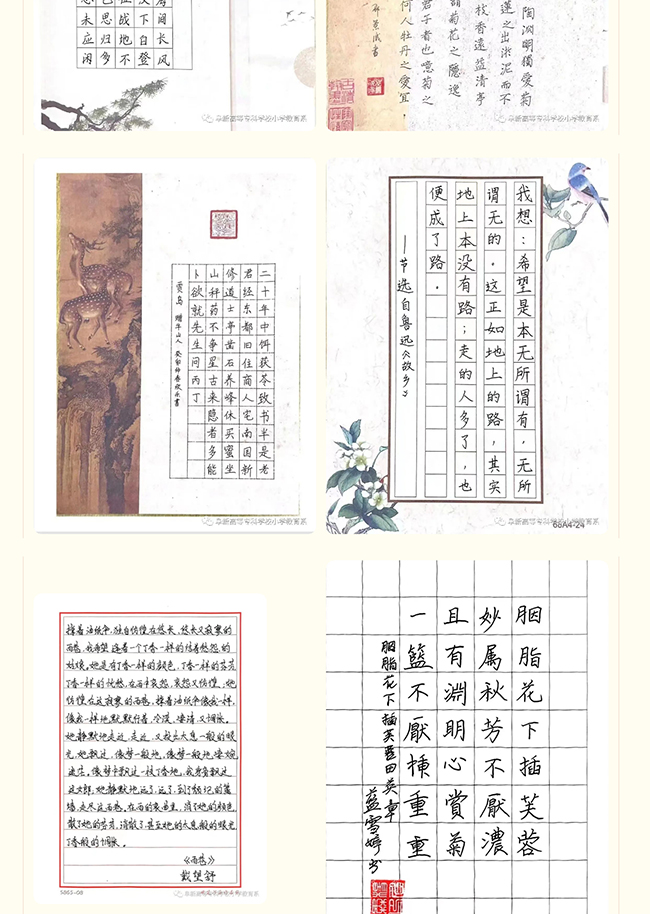 间长风
下白登
战地不
思归多
未应闲
陶渊明獨爱菊
蓮之出淤泥而不
枝香遠益清亭
谓菊花之隱逸
君子者也噫菊之
何人牡丹之爱宜
阜新高等专科学校小学教育系
阜新高等专科学校小学教育系
二十年中饵获苓致书半是老
君经东都旧住商人宅南国新
修道士亭凿石养峰休买蜜坐
山秤药不争星古来隐者多能
卜欲就先生问丙丁
贾岛 赠牛山人
阜新高等专科学校小学教育系
我想：希望是本无所谓有，无所
谓无的。这正如地上的路，其实
地上本没有路；走的人多了，也
便成了路。
——节选自鲁迅《故乡》
阜新高等专科学校小学教育系
68A4-24
撑着油纸伞，独自彷徨在悠长，悠长又寂寥的
雨巷，我希望逢着一个丁香一样的结着愁怨的
姑娘。她是有丁香一样的颜色，丁香一样的芬芳
丁香一样的忧愁，在雨中哀怨，哀怨又彷徨，她
彷徨在这寂寥的雨巷，撑着油纸伞像我一样，
像我一样地默默彳亍着，冷漠，凄清，又惆怅。
她静默地走近，走近，又投出太息一般的眼
光，她飘过，像梦一般地，像梦一般地凄婉
迷茫。像梦中飘过一枝丁香地，我身旁飘过
这女郎，她静默地远了，远了，到了颓圮的篱
墙，走尽这雨巷。在雨的哀曲里，消了她的颜色
散了她的芬芳，消散了，甚至她的太息般的眼光
丁香般的惆怅。
《雨巷》
戴望舒
5863-08
胭脂花下插芙蓉
妙属秋芳不厭濃
且有淵明心賞菊
一籃不厭棟重重
胭脂花下插芙蓉
藍雪婷书